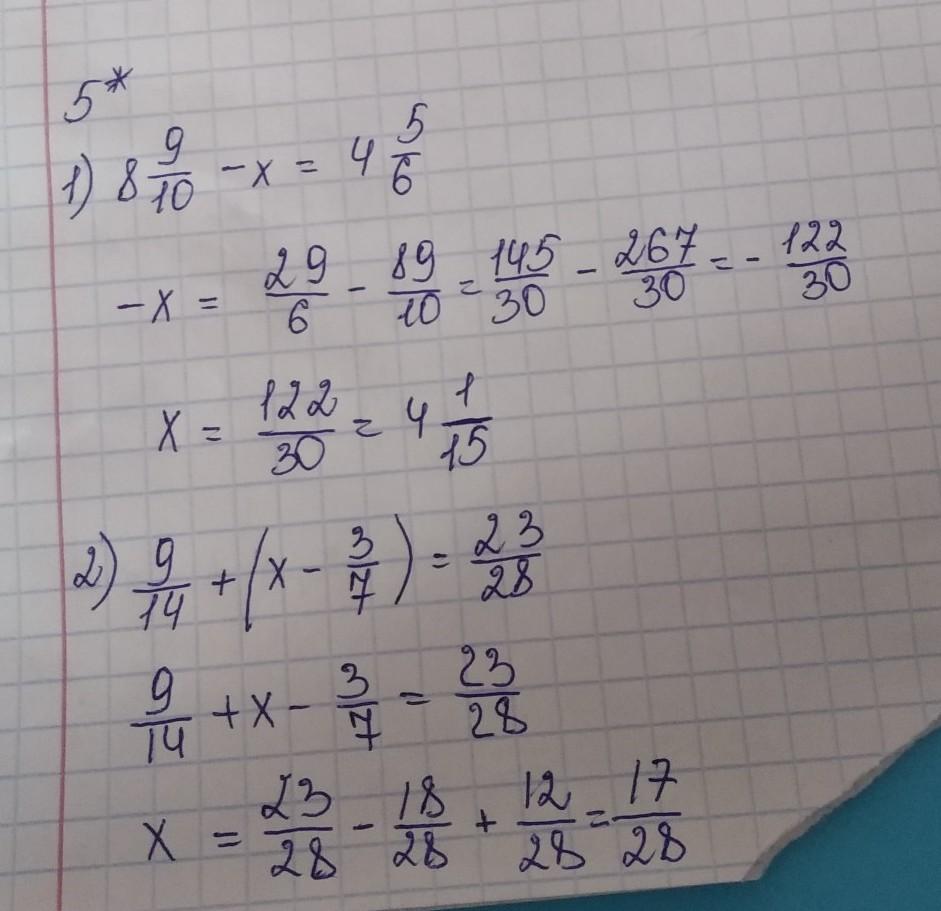 5*
1) 8 9/10 - x = 4 5/6
-x = 29/6 - 89/10 = 145/30 - 267/30 = - 122/30
x = 122/30 = 4 1/15
2) 9/14 + (x - 3/7) = 23/28
9/14 + x - 3/7 = 23/28
x = 23/28 - 18/28 + 12/28 = 17/28